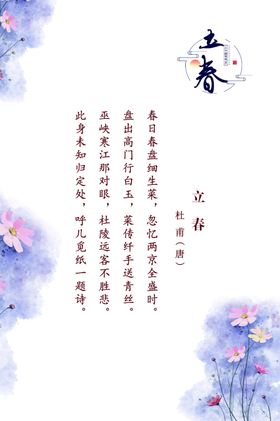 立春
立春
杜甫（唐）
春日春盘细生菜，忽忆两京全盛时。
盘出高门行白玉，菜传纤手送青丝。
巫峡寒江那对眼，杜陵远客不胜悲。
此身未知归定处，呼儿觅纸一题诗。